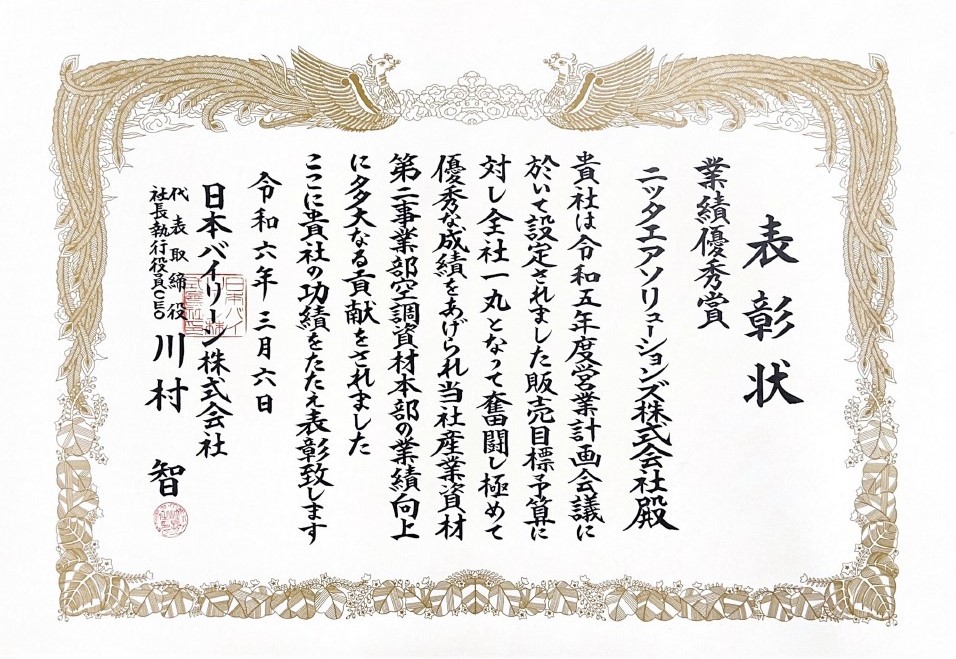 表彰状
業績優秀賞
ニッタエアソリューションズ株式会社殿
貴社は令和五年度営業計画会議に
於いて設定されました販売目標予算に
対し全社一丸となって奮闘し極めて
優秀な成績をあげられ当社産業資材
第二事業部空調資材本部の業績向上
に多大なる貢献をされました
ここに貴社の功績をたたえ表彰致します
令和六年三月六日
日本バイリーン株式会社
代表取締役
社長執行役員CEO
川村 智